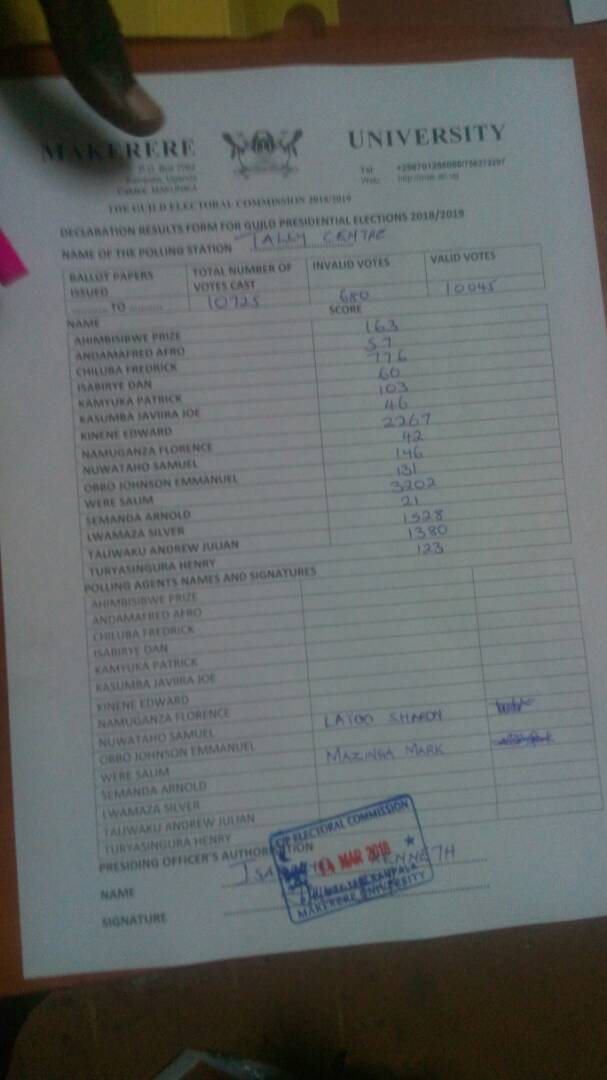 MAKERERE UNIVERSITY
P.O. Box 7062
Kampala, Uganda
Cables: MAKUNIKA
Tel:
Web:
THE GUILD ELECTORAL COMMISSION 2018/2019
DECLARATION RESULTS FORM FOR GUILD PRESIDENTIAL ELECTIONS 2018/2019
NAME OF THE POLLING STATION TALLY CENTRE
BALLOT PAPERS ISSUED TOTAL NUMBER OF VOTES CAST INVALID VOTES VALID VOTES
.......... TO .......... 10725 680 10045
NAME SCORE
AHIMBISIBWE PRIZE 163
ANDAMAFRED AFRO 57
CHILUBA FREDRICK 776
ISABIRYE DAN 60
KAMYUKA PATRICK 103
KASUMBA JAVIIRA JOE 46
KINENE EDWARD 2267
NAMUGANZA FLORENCE 42
NUWATAHO SAMUEL 146
OBBO JOHNSON EMMANUEL 131
WERE SALIM 3202
SEMANDA ARNOLD 21
LWAMAZA SILVER 1528
TALIWAKU ANDREW JULIAN 1380
TURYASINGURA HENRY 123
POLLING AGENTS NAMES AND SIGNATURES
AHIMBISIBWE PRIZE
ANDAMAFRED AFRO
CHILUBA FREDRICK
ISABIRYE DAN
KAMYUKA PATRICK
KASUMBA JAVIIRA JOE
KINENE EDWARD
NAMUGANZA FLORENCE
NUWATAHO SAMUEL LATOO SHARON
OBBO JOHNSON EMMANUEL
WERE SALIM MAZINGA MARK
SEMANDA ARNOLD
LWAMAZA SILVER
TALIWAKU ANDREW JULIAN
TURYASINGURA HENRY
PRESIDING OFFICER'S AUTHORISATION
NAME KENNETH
SIGNATURE
ELECTORAL COMMISSION
14 MAR 2018
KAMPALA
MAKERERE UNIVERSITY